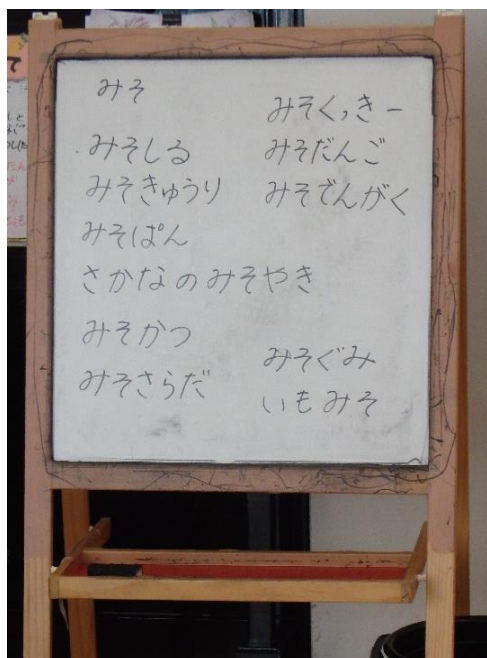 みそ
みそしる
みそきゅうり
みそぱん
さかなのみそやき
みそかつ
みそさらだ
みそくっきー
みそだんご
みそでんがく
みそぐみ
いもみそ